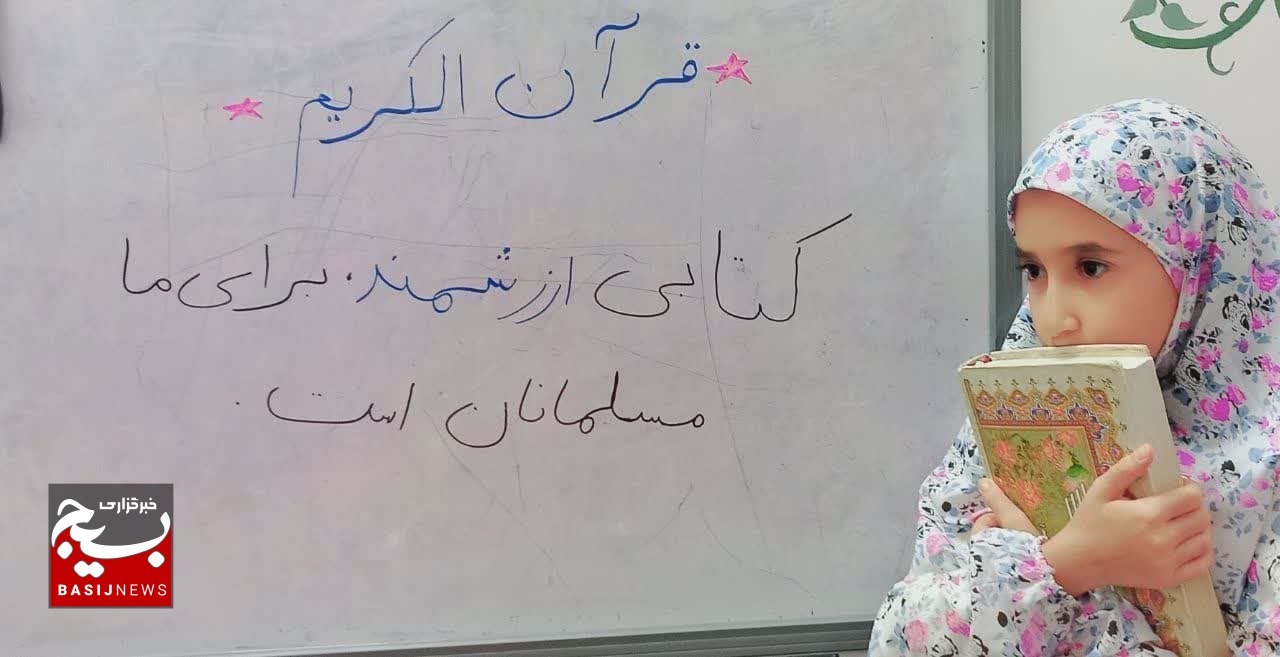 قرآن الکریم
کتابی ارزشمند برای ما
مسلمانان است.
خبرگزاری
بسیج
BASIJNEWS